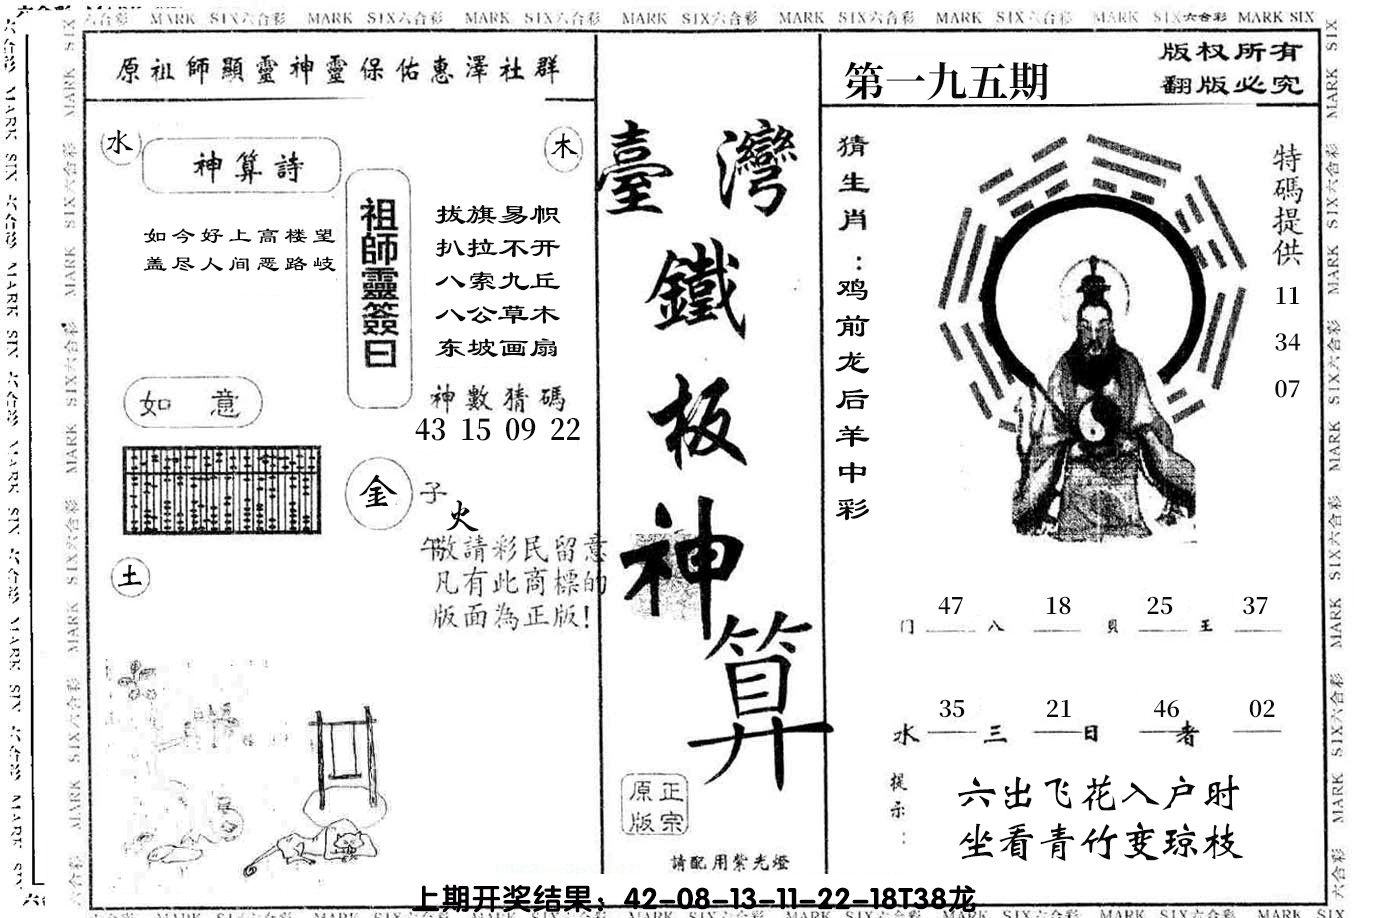 MARK SIX六合彩 MARK SIX六合彩 MARK SIX六合彩 MARK SIX六合彩 MARK SIX六合彩 MARK SIX六合彩 MARK SIX六合彩 MARK SIX
原祖師顯靈神靈保佑惠澤社群
水
神算詩
木
如今好上高楼望
盖尽人间恶路岐
祖師靈簽曰
拔旗易帜
扒拉不开
八索九丘
八公草木
东坡画扇
神數猜碼
43 15 09 22
如意
金
子
火
午
敬請彩民留意
凡有此商標的
版面為正版!
土
臺灣
鐵
板
神
算
原正
版宗
請配用紫光燈
第一九五期
版权所有
翻版必究
猜生肖：鸡前龙后羊中彩
特碼提供
11
34
07
47 18 25 37
门 八 贝 王
35 21 46 02
水 三 日 者
提示：
六出飞花入户时
坐看青竹变琼枝
上期开奖结果：42-08-13-11-22-18T38龙